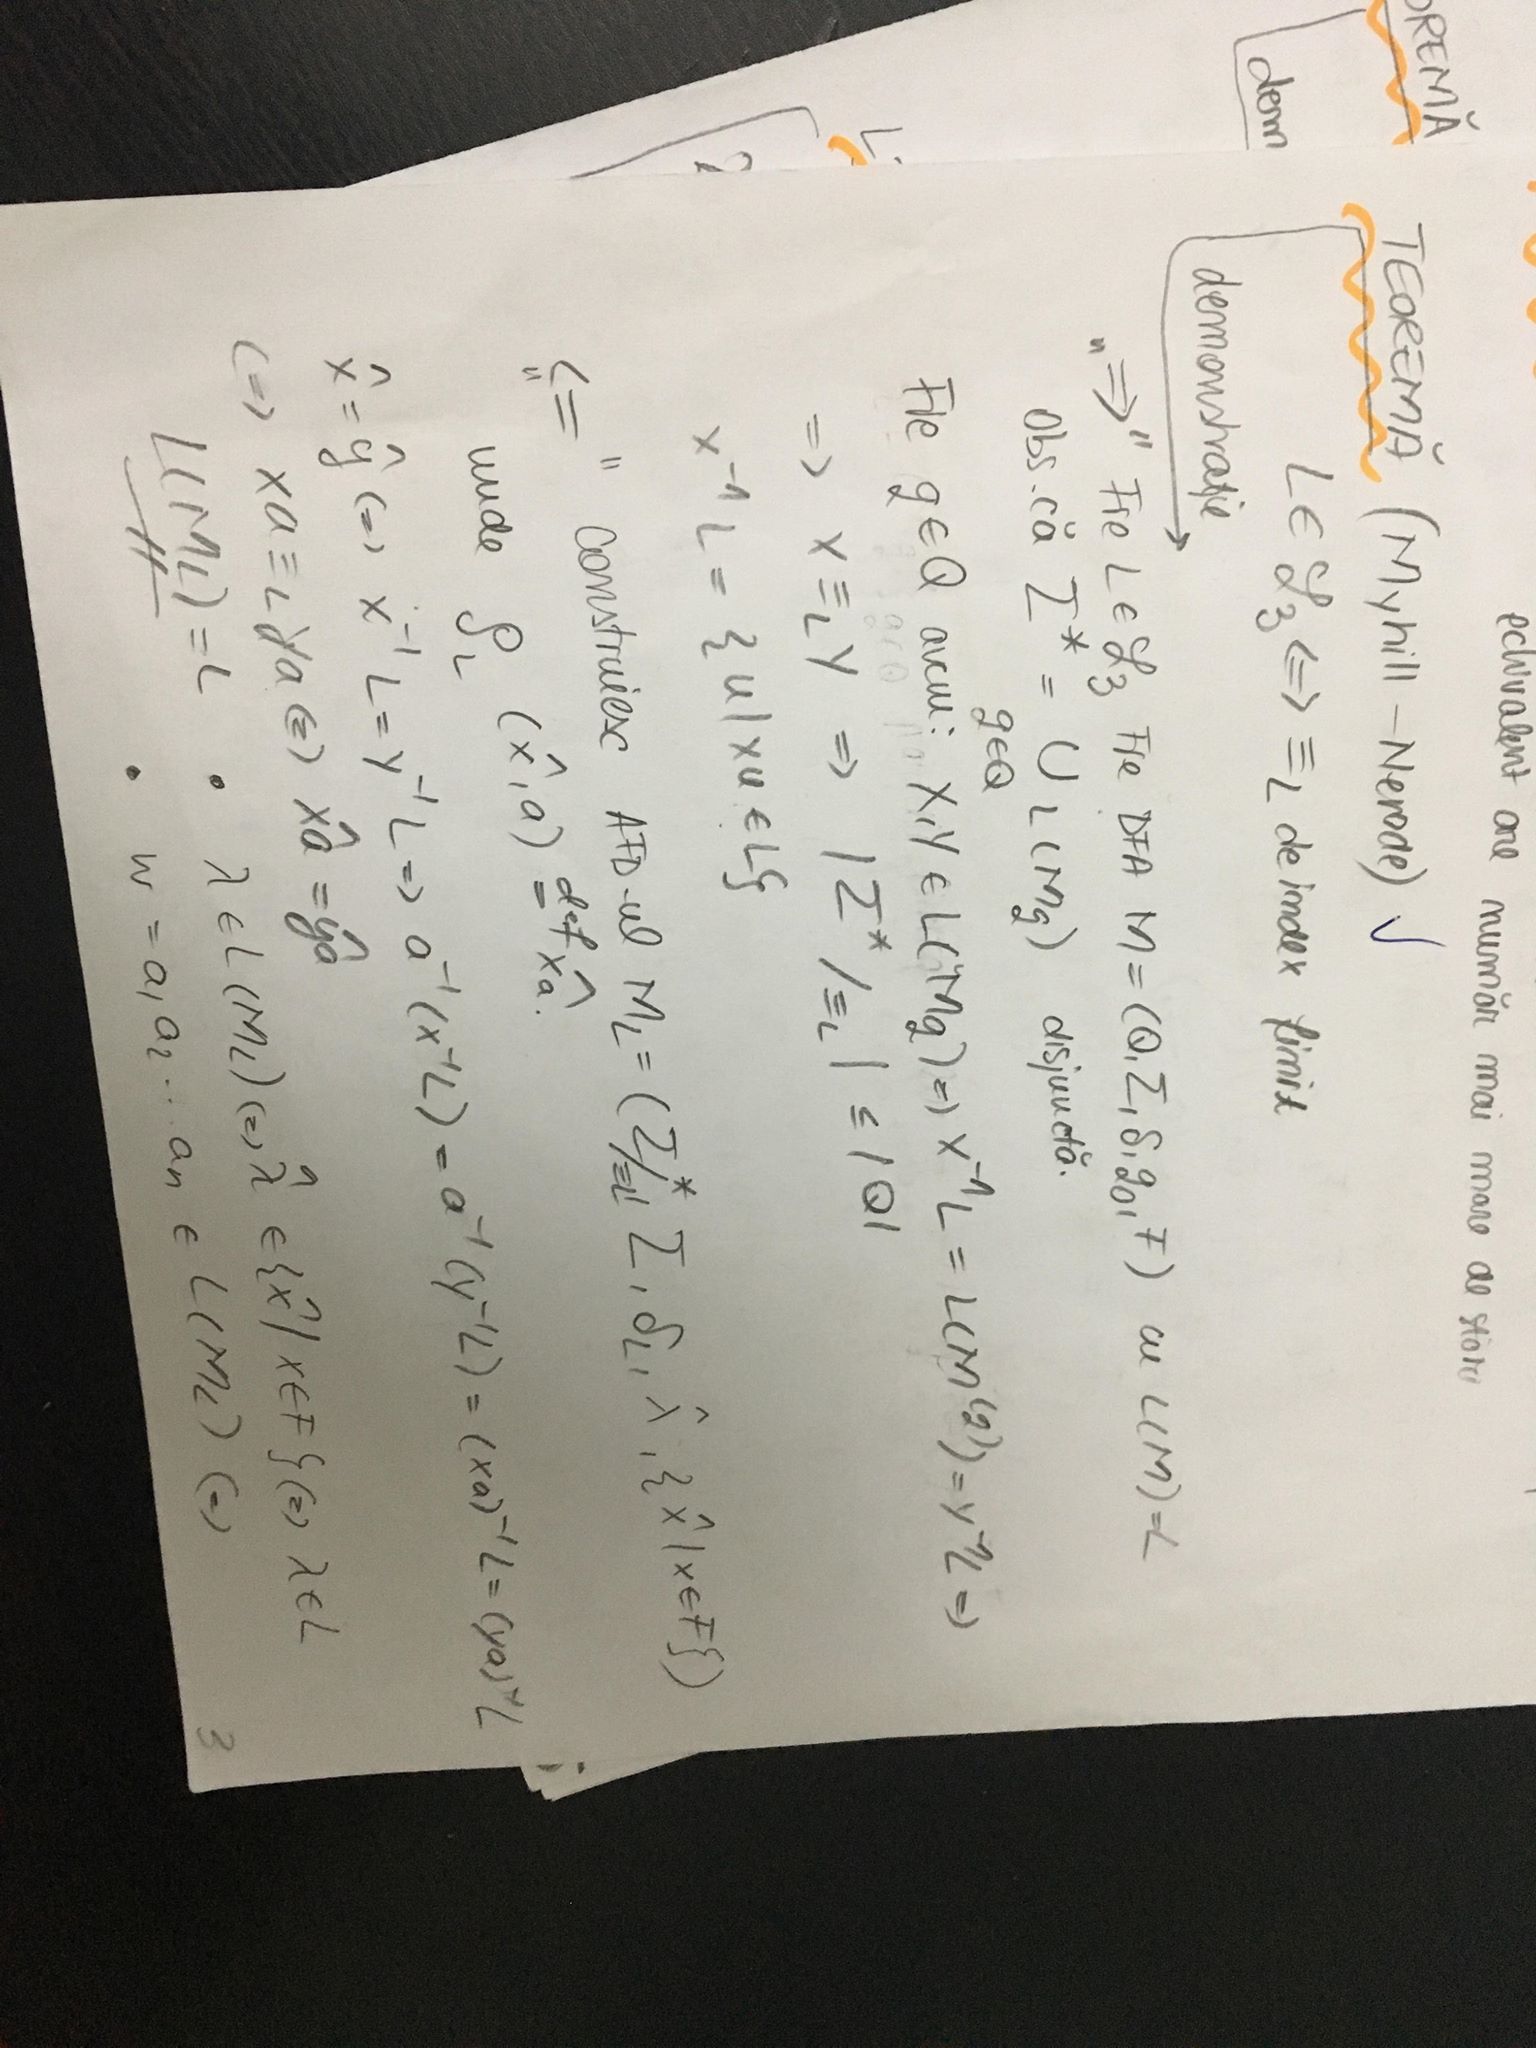 echivalent are număr mai mare de stări
TEOREMĂ (Myhill-Nerode) ✓
L ∈ ℒ₃ <=> ≡_L de index finit
demonstrație
"=>" Fie L ∈ ℒ₃ Fie DFA M = (Q, Σ, δ, q₀, F) cu L(M) = L
Obs. că Σ* = ∪_{q∈Q} L(M_q) disjunctă.
Fie q ∈ Q avem: x,y ∈ L(M_q) => x⁻¹L = L(M^(q)) = y⁻¹L =>
=> x ≡_L y => |Σ*/≡_L| ≤ |Q|
x⁻¹L = {u | xu ∈ L}
"<=" Construiesc AFD-ul M_L = (Σ*/≡_L, Σ, δ_L, λ̂, {x̂ | x ∈ F})
unde δ_L (x̂, a) =^def x̂a.
x̂ = ŷ <=> x⁻¹L = y⁻¹L => a⁻¹(x⁻¹L) = a⁻¹(y⁻¹L) = (xa)⁻¹L = (ya)⁻¹L
<=> xa ≡_L ya <=> x̂a = ŷa
L(M_L) = L • λ ∈ L(M_L) <=> λ̂ ∈ {x̂ | x ∈ F} <=> λ ∈ L
• w = a₁a₂...an ∈ L(M_L) <=>
3
OREMĂ
dem
L